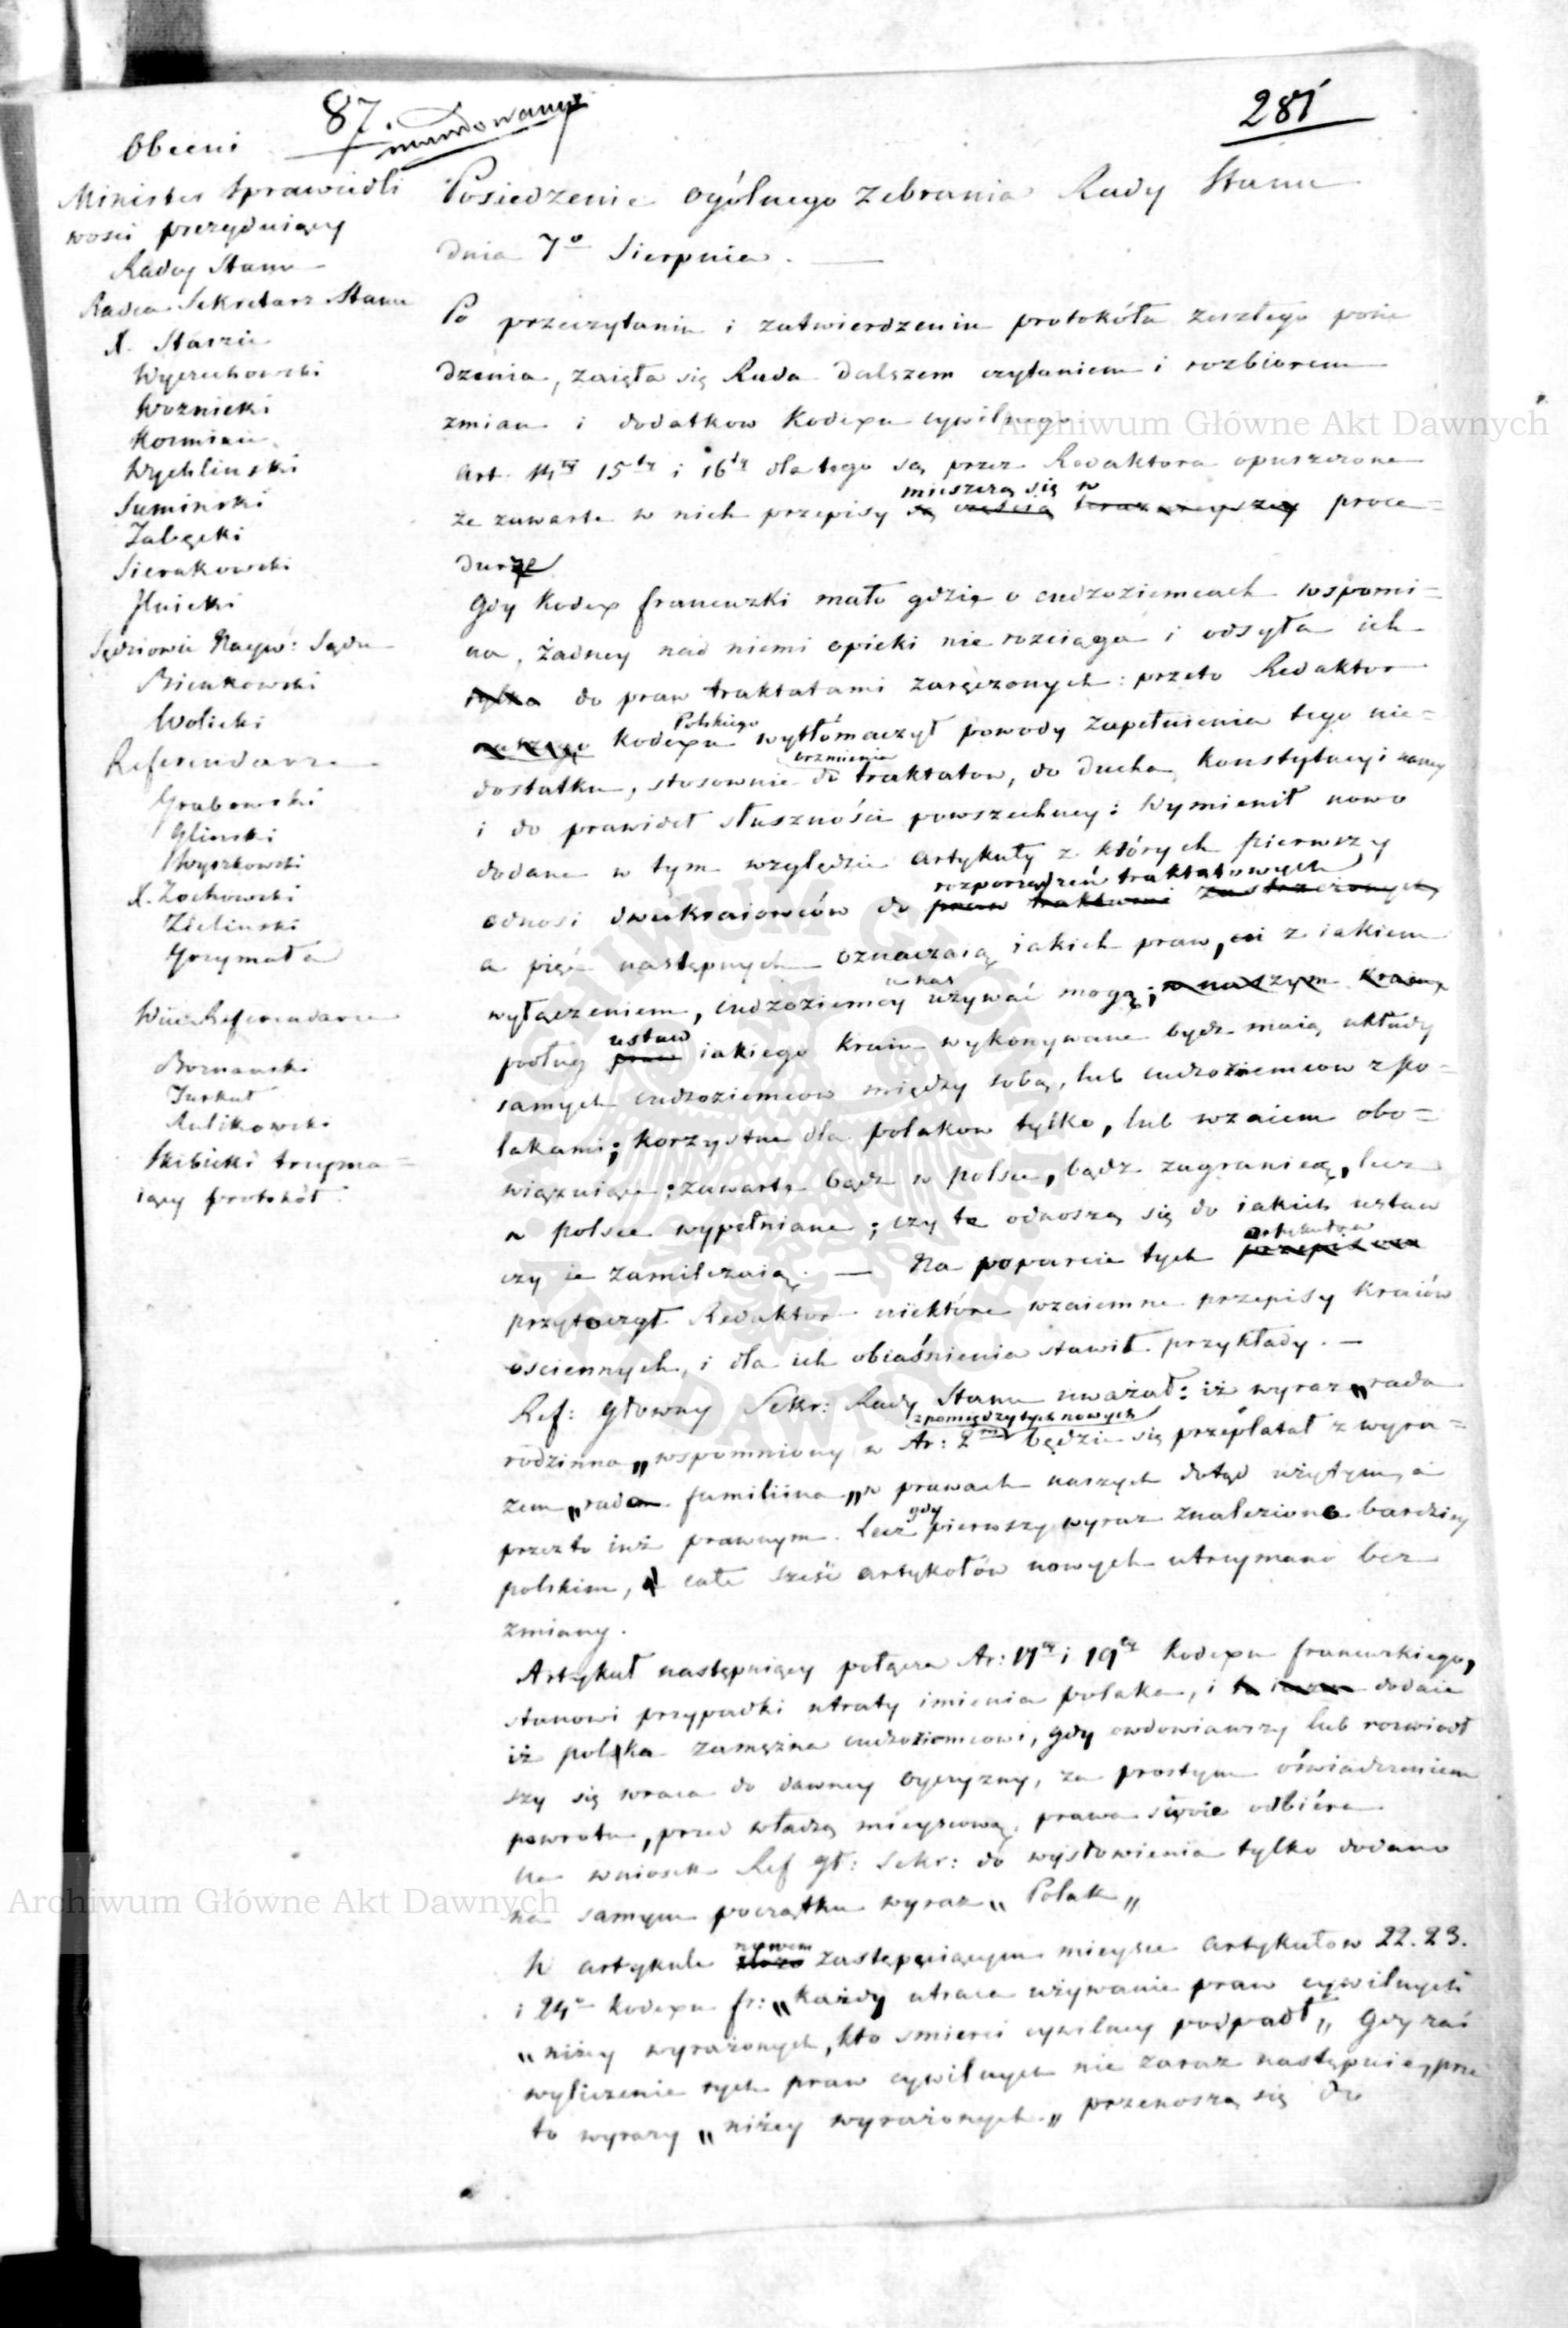 87.
mundowany
281
Obecni
Minister Sprawiedli
wości prezyduiący
Radcy Stanu
Radca Sekretarz Stanu
X. Staszic
Wyczechowski
Woznicki
Kozmian
Wychlinski
Suminski
Zalęcki
Sierakowski
Hnicki
Sędziowie Nayw: Sądu
Bienkowski
Wolicki
Referendarze
Grabowski
Glinski
Wyszkowski
X. Zochowski
Zielinski
Grzymała
Wice Referendarze
Poznanski
Turkuł
Kulikowski
Skibicki trzyma=
iący protokół.
Posiedzenie ogólnego Zebrania Rady Stanu
dnia 7o Sierpnia. —
Po przeczytaniu i zatwierdzeniu protokóła zeszłego posie
dzenia, zaięła się Rada dalszem czytaniem i rozbiorem
zmian i dodatkow Kodexu cywilnego.
Art. 14ty 15ty i 16ty dla tego są przez Redaktora opuszczone
mieszczą się w
że zawarte w nich przepisy są częścią teraznieyszey proce=
durze
Gdy Kodex francuzki mało gdzie o cudzoziemcach wspomi=
na, żadney nad niemi opieki nie rozciąga i odsyła ich
tylko do praw traktatami zaręczonych: przeto Redaktor
Polskiego
naszego Kodexu wytłómaczył powody zapełnienia tego nie=
brzmienia
dostatku, stosownie do traktatow, do ducha Konstytucyi naszey
i do prawideł słuszności powszechney: Wymienił nowo
dodane w tym względzie artykuły z których pierwszy
rozporządzeń traktatowych
odnosi dwukraiowców do praw traktatami zastrzeżonych,
a pięć następnych oznaczaią iakich praw, i z iakiem
u nas
wyłączeniem, cudzoziemcy używać mogą; w naszym Kraiu,
ustaw
podług praw iakiego kraiu wykonywane bydz maią układy
samych cudzoziemcow między sobą, lub cudzoziemcow z Po=
lakami; korzystne dla polakow tylko, lub wzaiem obo=
wiązuiące; zawarte bądz w polsce, bądz zagranicą, lecz
w polsce wypełniane; czy te odnoszą się do iakich ustaw
artykułów
czy ie zamilczaią. — Na poparcie tych przepisow
przytoczył Redaktor niektóre wzaiemne przepisy Kraiów
ościennych, i dla ich obiaśnienia stawił przykłady. —
Ref: główny Sekr: Rady Stanu uważał: iż wyraz „rada
z pomiędzy tych nowych
rodzinna„ wspomniony w Ar: 2m będzie się przeplatał z wyra=
zem „rada familiina„ w prawach naszych dotąd użytym, a
gdy
przez to iuż prawnym. Lecz pierwszy wyraz znaleziono bardziey
polskim, całe sześć artykołów nowych utrzymano bez
zmiany.
Artykuł następuiący połącza Ar: 17ty i 19ty Kodexu francuzkiego,
stanowi przypadki utraty imienia polaka, i dodaie
iż polka zamężna cudzoziemcowi, gdy owdowiawszy lub rozwiodł
szy się wraca do dawney oyczyzny, za prostym oświadczeniem
powrotu, przed władzą mieyscową, prawa swoie odbiéra
Na wniosek Ref gł: Sekr: do wysłowienia tylko dodano
na samym początku wyraz „Polak„
nowem
W artykule zastępuiącym mieysce artykułow 22. 23.
i 24o Kodexu fr: „każdy utraca używanie praw cywilnych
„niżey wyrażonych, kto smierci cywilney podpadł„ Gdy zaś
wyliczenie tych praw cywilnych nie zaraz następuie, prze
to wyrazy „niżey wyrażonych„ przenoszą się do
Archiwum Główne Akt Dawnych
Archiwum Główne Akt Dawnych